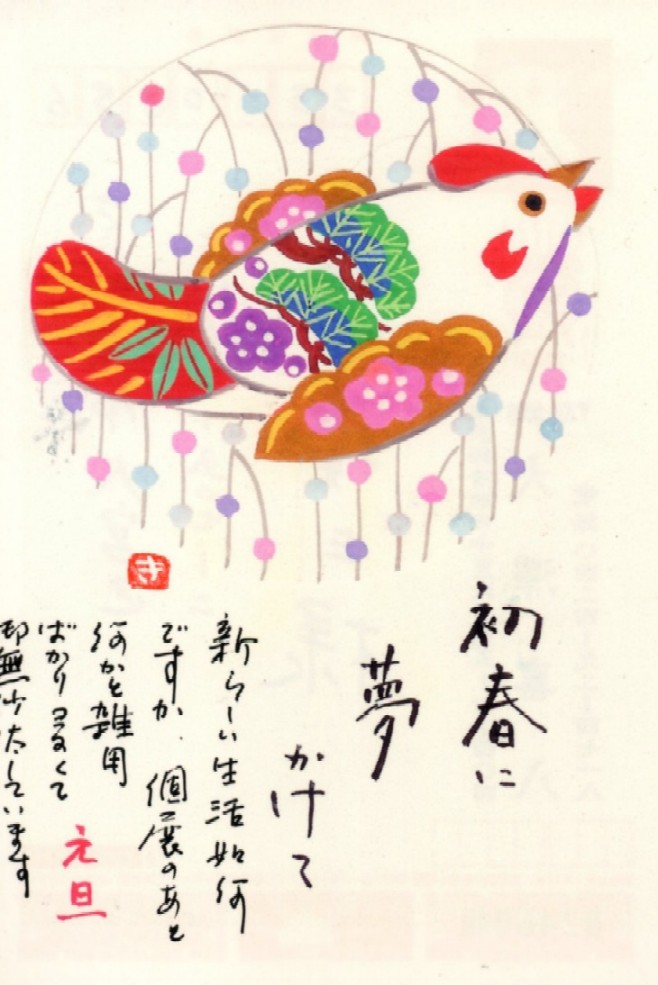 初春に
夢
かけて
新らしい生活如何
ですか、個展のあと
何かと雑用
ばかり多くて
御無沙汰しています
元旦
き